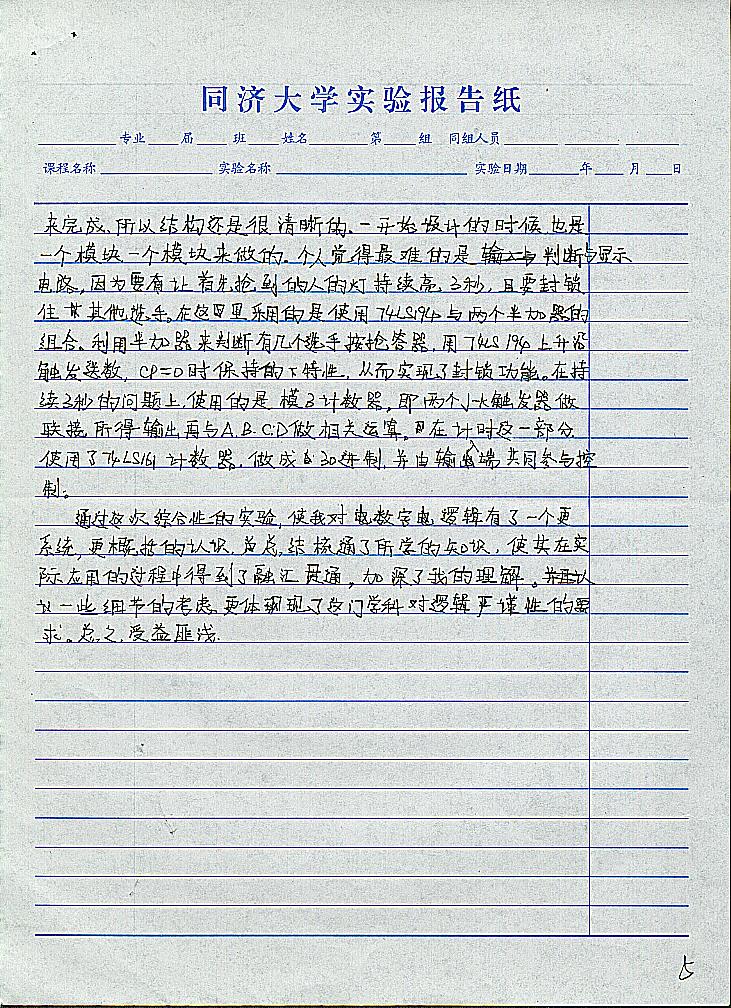 同济大学实验报告纸
专业 届 班 姓名 第 组 同组人员
课程名称 实验名称 实验日期 年 月 日
来完成,所以结构还是很清晰的。一开始设计的时候也是
一个模块一个模块来做的。个人觉得最难的是 判断与显示
电路,因为要有让首先抢到的人的灯持续亮3秒,且要封锁
住其他选手。在这里采用的是使用74LS194与两个半加器的
组合。利用半加器来判断有几个选手按抢答器,用74LS194上升沿
触发送数,CP=0时保持的特性,从而实现了封锁功能。在持
续3秒的问题上,使用的是模3计数器,即两个J-K触发器做
联接,所得输出再与A.B.C.D做相关运算。在计时这一部分
使用了74LS161计数器,做成30进制,并由输入端共同参与控
制。
通过这次综合性的实验,使我对数字电逻辑有了一个更
系统,更概括的认识,总结梳通了所学的知识,使其在实
际应用的过程中得到了融汇贯通,加深了我的理解。
一些细节的考虑,更体现了这门学科对逻辑严谨性的要
求。总之,受益匪浅.
5